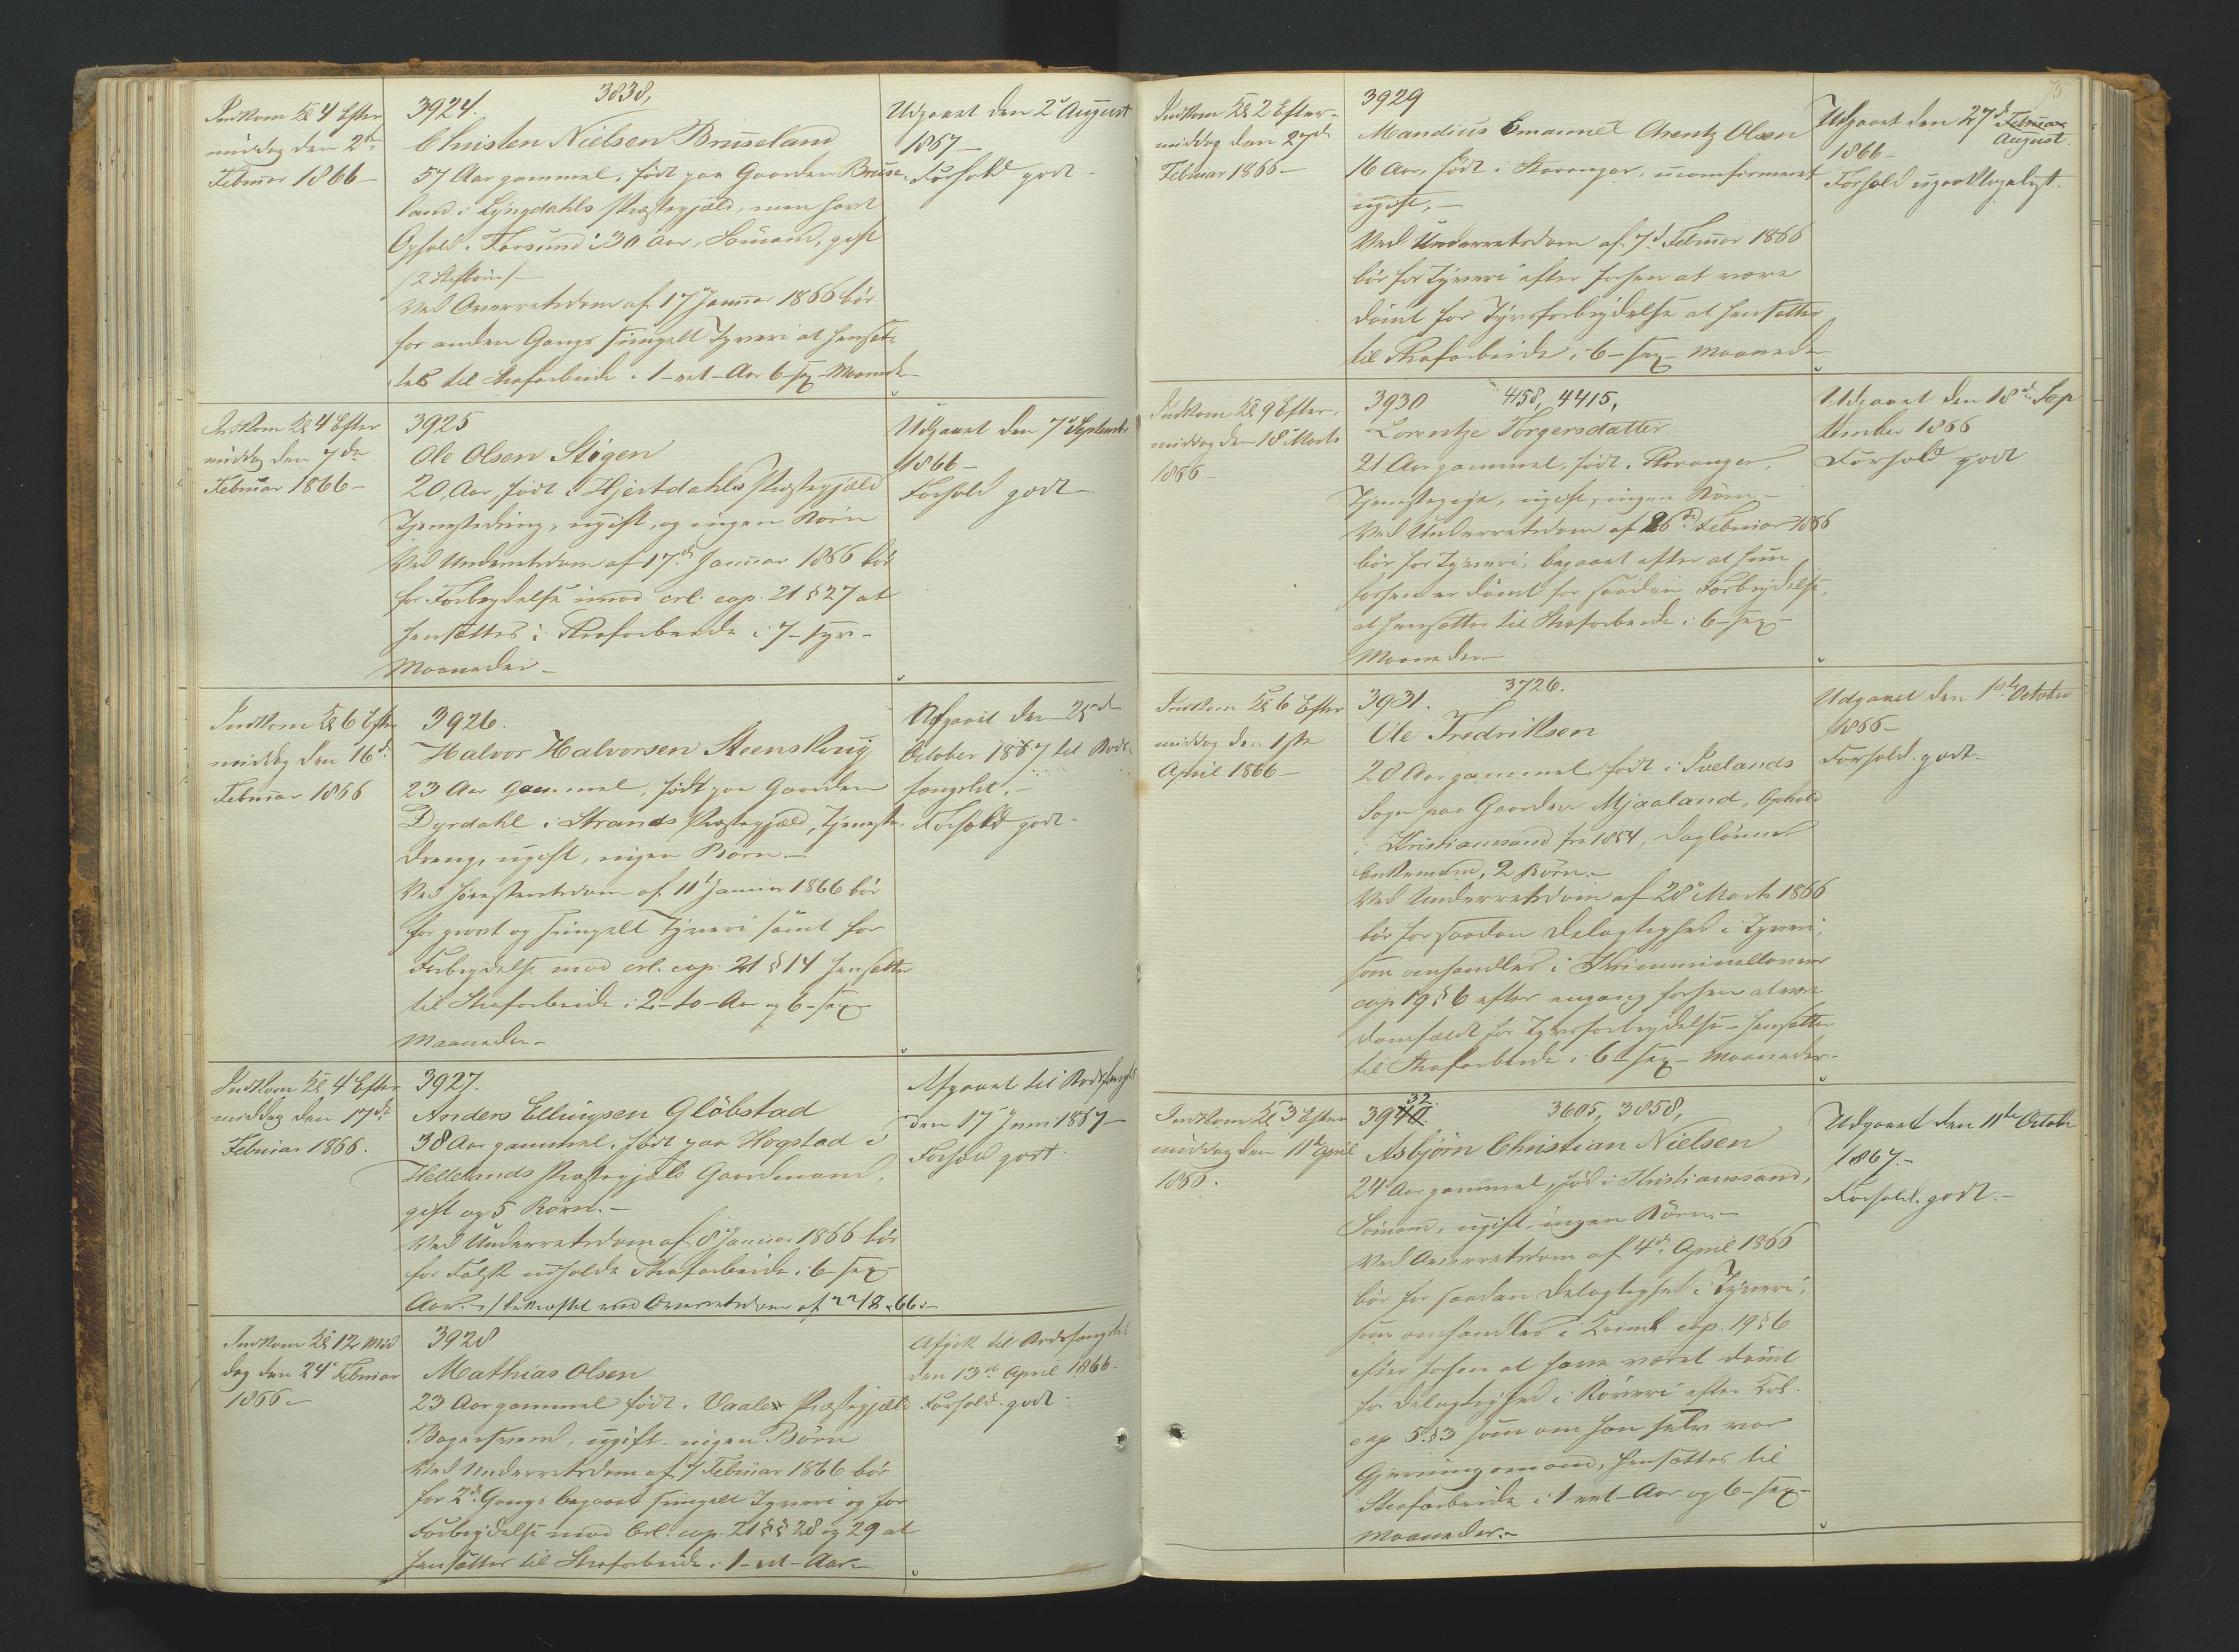 3838,
Indkom Kl 4 Efter
middag den 2den
Februar 1866 –
3924.
Christen Nielsen Bruseland
57 Aar gammel, født paa Gaarden Bruse-
land i Lyngdahls Præstegjæld, men havt
Ophold i Farsund i 30 Aar, Sømand, gift
/2 Stifbørn/ –
Ved Overretsdom af 17 Januar 1866 bør
for anden Gangs simpelt Tyveri at hensæt-
tes til Strafarbeide i 1 – et – Aar 6 – sex – Maaneder
Udgaaet den 2 August
1867 –
Forhold godt –
Indkom Kl 4 Efter
middag den 7de
Februar 1866 –
3925
Ole Olsen Stigen
20 Aar, født i Hjertdahls Præstegjæld
Tjenestedreng, ugift, og ingen Børn
Ved Underretsdom af 17d Januar 1866 bør
for Forbrydelse imod crl. cap. 21 § 27 at
hensættes i Strafarbeide i 7 – syv –
Maaneder –
Udgaaet den 7 September
1866 –
Forhold godt –
Indkom Kl 6 Efter
middag den 16d
Februar 1866
3926.
Halvor Halvorsen Steenskrug
23 Aar gammel, født paa Gaarden
Dyrdahl i Strands Præstegjæld, Tjeneste-
dreng, ugift, ingen Børn –
Ved Høiesteretsdom af 11 Januar 1866 bør
for grovt og simpelt Tyveri samt for
Forbrydelse mod crl. cap. 21 § 14 hensættes
til Strafarbeide i 2 – to – Aar og 6 – sex
Maaneder –
Afgaaet den 25d
October 1867 til Bods-
fængslet. –
Forhold godt –
Indkom Kl 4 Efter
middag den 17de
Februar 1866.
3927.
Anders Ellingsen Gløbstad
38 Aar gammel, født paa Hogstad i
Hellelands Præstegjæld Gaardmand,
gift og 5 Børn. –
Ved Underretsdom af 8 Januar 1866 bør
for Falsk udholde Strafarbeide i 6 – sex
Aar. – /stadfæstet ved Overretsdom af 22/8 66. –
Afgaaet til Bodsfængslet
den 17 Juni 1867 –
Forhold godt.
Indkom Kl 12 Mid
dag den 24 Februar
1866 –
3928
Mathias Olsen
23 Aar gammel født i Vaaler Præstegjæld
Bagersvend, ugift, ingen Børn
Ved Underretsdom af 7 Februar 1866 bør
for 2d Gangs begaaet simpelt Tyveri og for
Forbrydelse mod Crl. cap. 21 §§ 28 og 29 at
hensættes til Strafarbeide i 1 – et – Aar. –
Afgik til Bodsfængslet
den 13de April 1866 –
Forhold godt –
75
Indkom Kl 2 Efter-
middag den 27d
Februar 1866 –
3929
Mandius Emanuel Arentz Olsen
16 Aar, født i Stavanger, uconfirmeret
ugift, –
Ved Underretsdom af 7d Februar 1866
bør for Tyveri efter forhen at være
dømt for Tyvsforbrydelse at hensættes
til Strafarbeide i 6 – sex – Maaneder
Udgaaet den 27d Februar
August
1866 –
Forhold upaaklageligt.
Indkom Kl 9 Efter-
middag den 18 Marts
1866 –
3930
4158, 4415,
Lorentze Torgersdatter
21 Aar gammel, født i Stavanger,
Tjenestepige, ugift, ingen Børn –
Ved Underretsdom af 26d Februar 1866
bør for Tyveri, begaaet efter at hun
forhen er dømt for saadan Forbrydelse,
at hensættes til Strafarbeide i 6 – sex –
Maaneder –
Udgaaet den 18de Sep
tember 1866
Forhold godt
Indkom Kl 6 Efter
middag den 1ste
April 1866 –
3931.
3726.
Ole Fredriksen
28 Aar gammel født i Ivelands
Sogn paa Gaarden Mjaaland, Ophold
i Kristianssand fra 1854, Daglønner
Enkemand, 2 Børn. –
Ved Underretsdom af 28 Marts 1866
bør for saadan Delagtighed i Tyveri,
som omhandles i Kriminalloven
cap 19 § 6 efter engang forhen at være
domfældt for Tyvsforbrydelse – hensættes
til Strafarbeide i 6 – sex – Maaneder –
Udgaaet den 1ste October
1866 –
Forhold godt –
Indkom Kl 3 Efter
middag den 11te April
1866.
32.
3940.
3605, 3858,
Asbjørn Christian Nielsen
24 Aar gammel, fød i Kristianssand,
Sømand, ugift, ingen Børn. –
Ved Overretsdom af 4de April 1866
bør for saadan Delagtighed i Tyveri,
som omhandles i Criml. cap. 19 § 6
efter forhen at have været dømt
for Delagtighed i Røveri efter Crl.
cap. 5 § 3 som om han selv var
Gjerningsmand, hensættes til
Strafarbeide i 1 – et – Aar og 6 – sex –
Maaneder. –
Udgaaet den 11te October
1867. –
Forhold godt. –